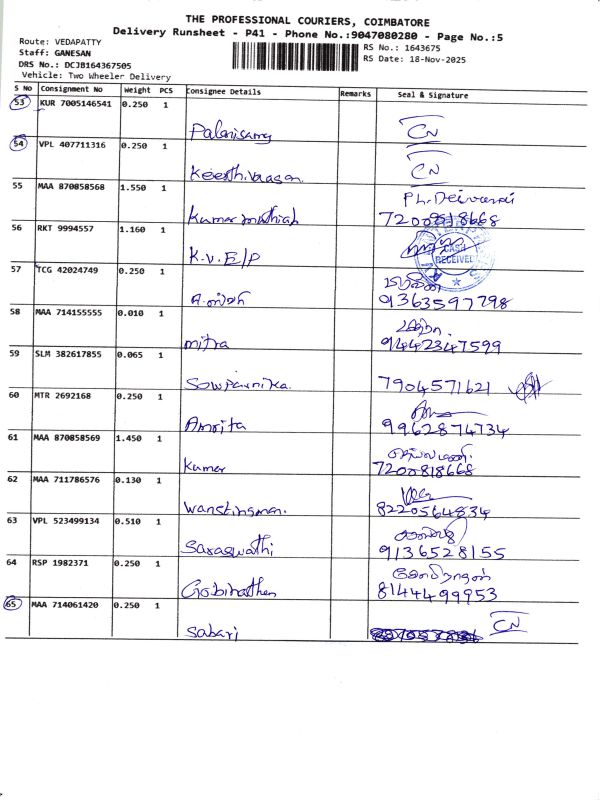 THE PROFESSIONAL COURIERS, COIMBATORE
Delivery Runsheet - P41 - Phone No.:9047080280 - Page No.:5
Route: VEDAPATTY
RS No.: 1643675
Staff: GANESAN
RS Date: 18-Nov-2025
DRS No.: DCJB164367505
Vehicle: Two Wheeler Delivery
S No Consignment No Weight PCS Consignee Details Remarks Seal & Signature
53 KUR 7005146541 0.250 1
Palanisamy CN
54 VPL 407711316 0.250 1
Keerthivaasan. CN
55 MAA 870858568 1.550 1
Ph. Deivanai
Kumar muthiah 7200818668
56 RKT 9994557 1.160 1
K.V.E/P CASH RECEIVED
57 TCG 42024749 0.250 1
9136359 7298
58 MAA 714155555 0.010 1
mitra 9442347599
59 SLM 382617855 0.065 1
Sowparnika. 7904571621
60 MTR 2692168 0.250 1
Amrita 9962874734
61 MAA 870858569 1.450 1
Kumar 7200818668
62 MAA 711786576 0.130 1
8220564834
63 VPL 523499134 0.510 1
Saraswathi 9136528155
64 RSP 1982371 0.250 1
கோபிநாதன்
Gobinathan 8144499953
65 MAA 714061420 0.250 1
Sabari CN